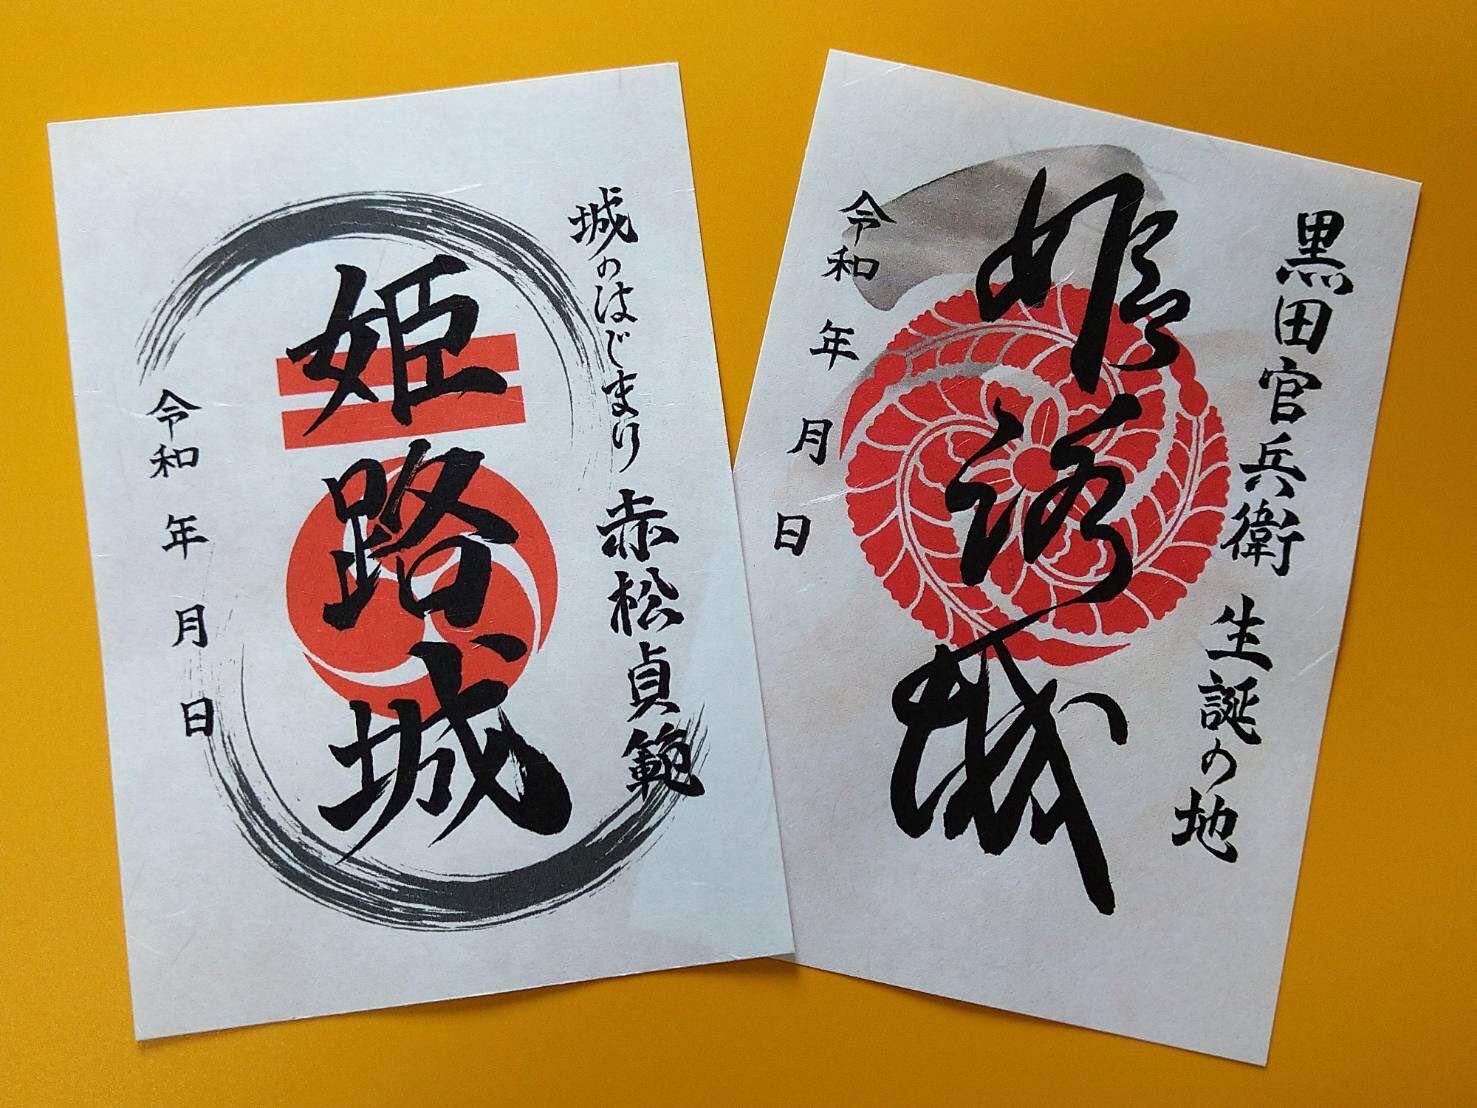 城のはじまり 赤松貞範
姫路城
令和 年 月 日
黒田官兵衛 生誕の地
姫路城
令和 年 月 日